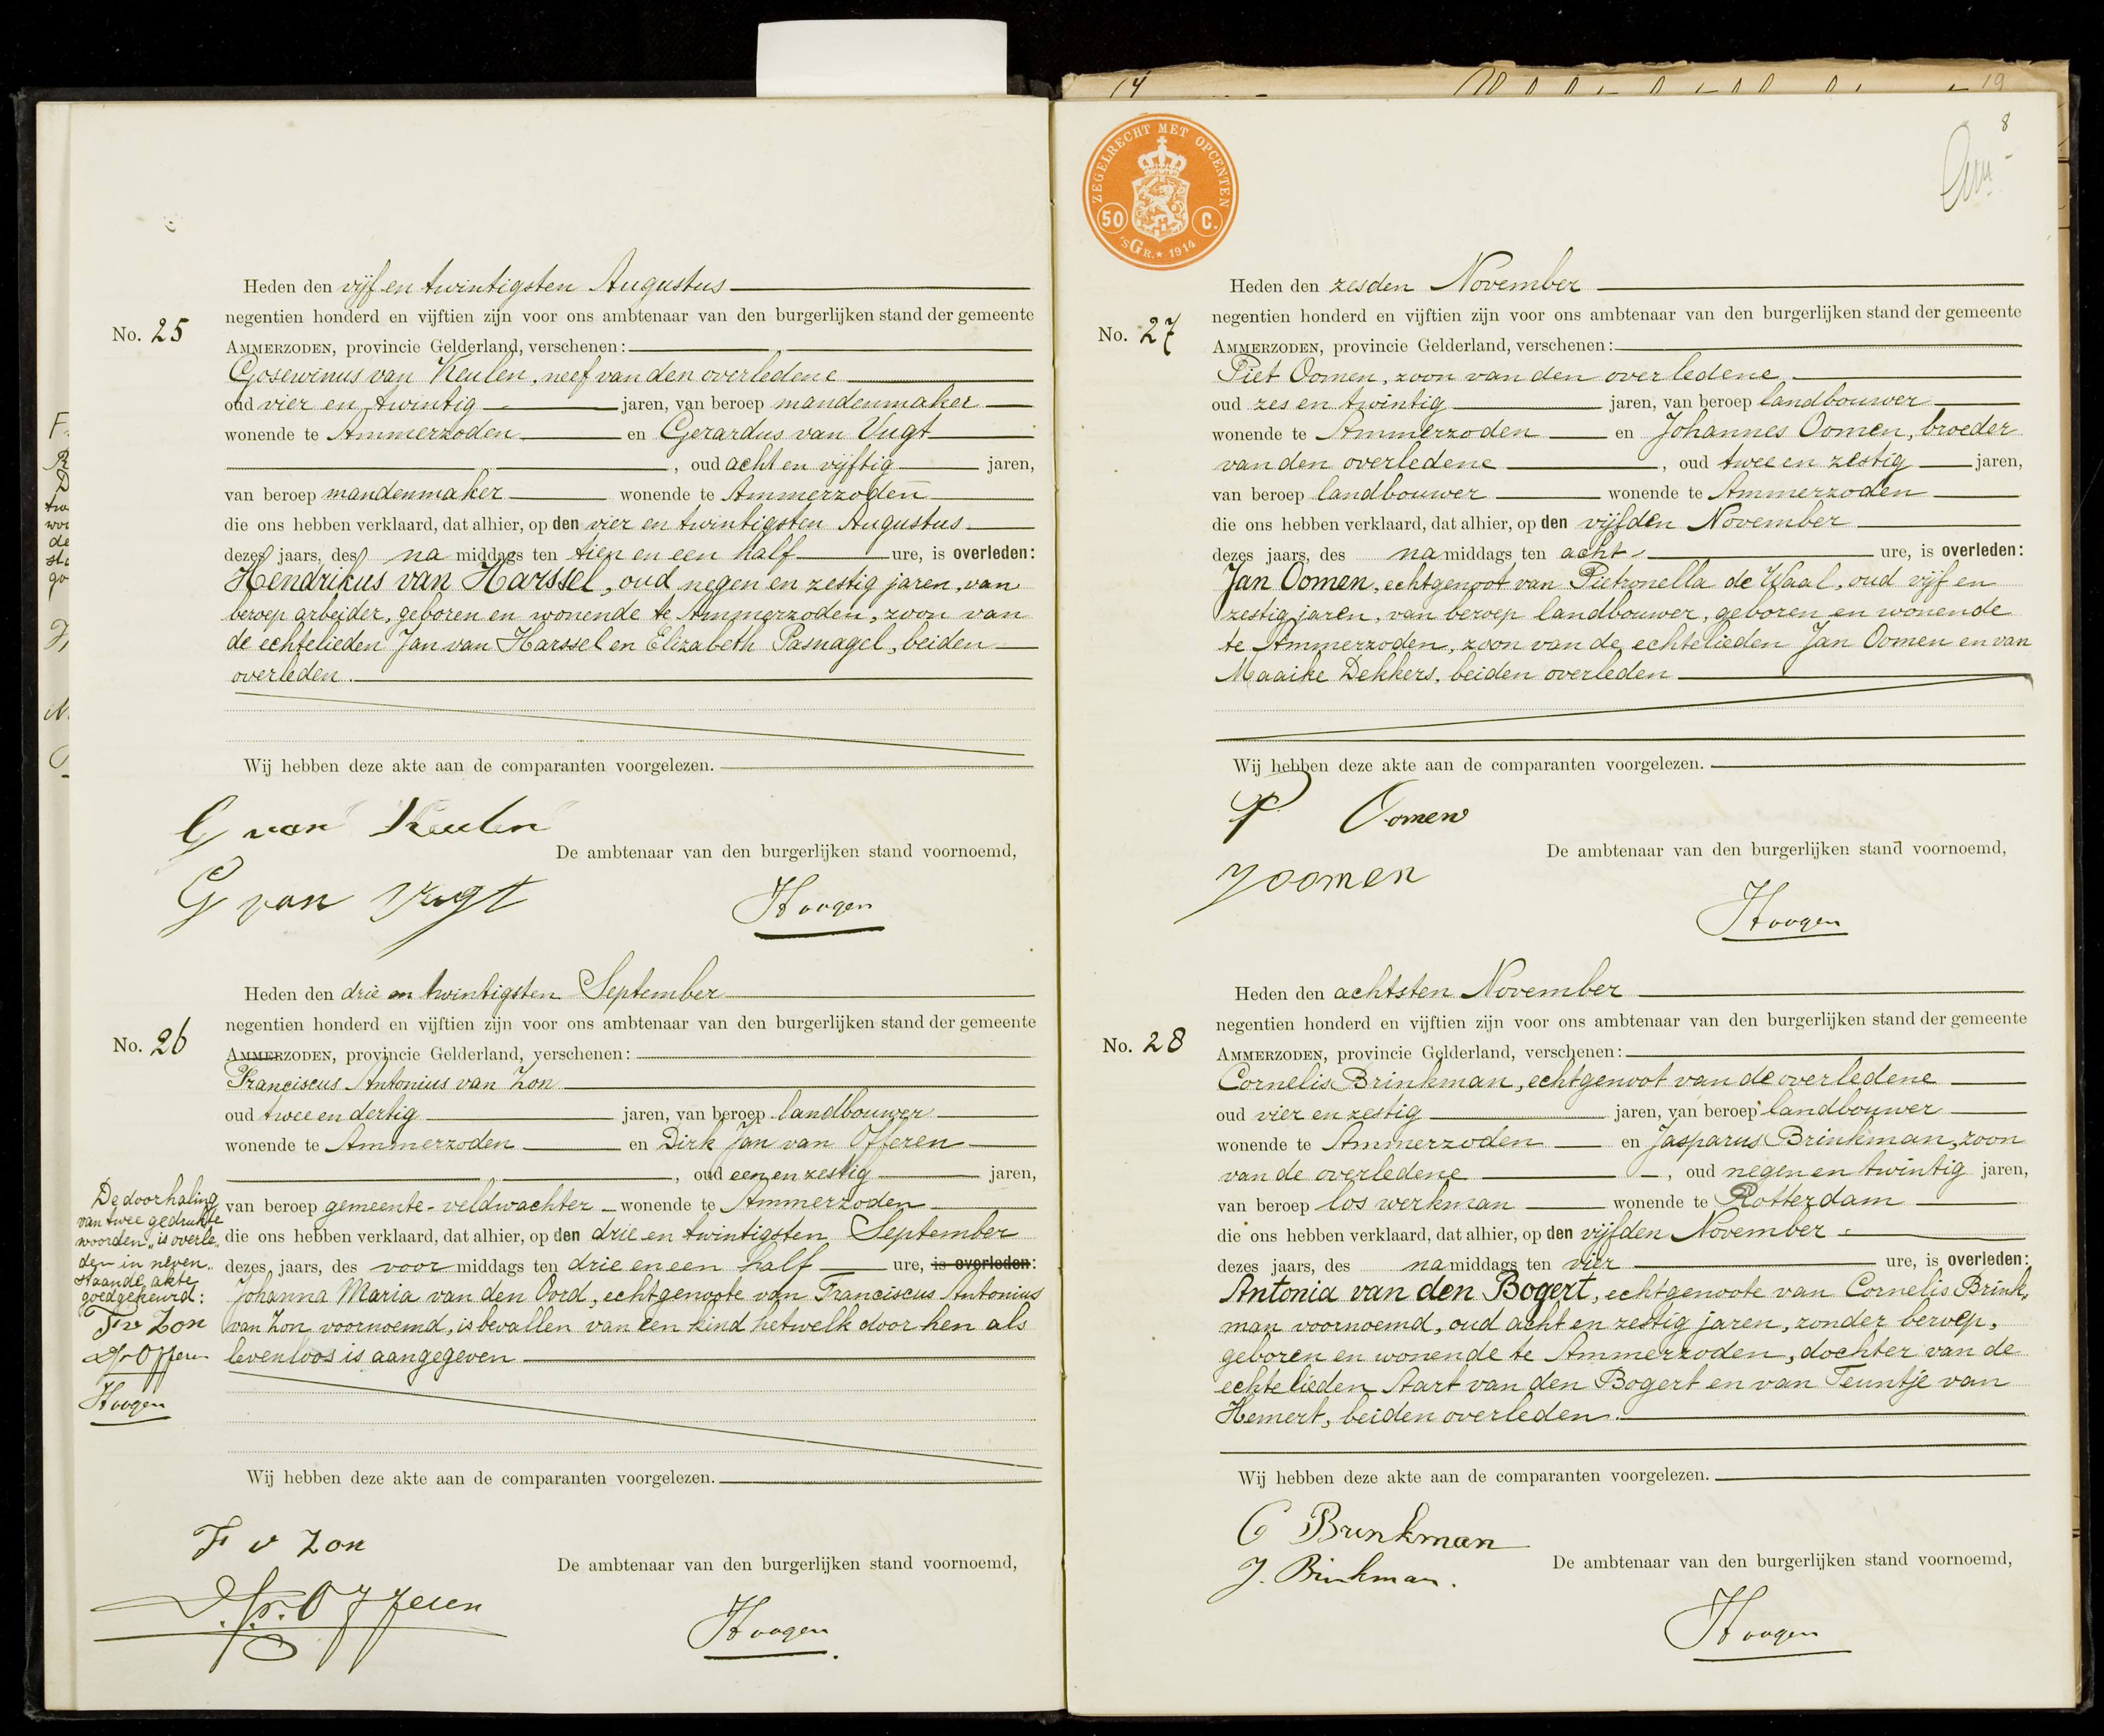 Heden den vijf en twintigsten Augustus
No. 25
negentien honderd en vijftien zijn voor ons ambtenaar van den burgerlijken stand der gemeente
AMMERZODEN, provincie Gelderland, verschenen:
Gosewinus van Keulen, neef van den overledene
oud vier en twintig jaren, van beroep mandenmaker
wonende te Ammerzoden en Gerardus van Vugt
, oud acht en vijftig jaren,
van beroep mandenmaker wonende te Ammerzoden
die ons hebben verklaard, dat alhier, op den vier en twintigsten Augustus
dezes jaars, des na middags ten tien en een half ure, is overleden:
Hendrikus van Harssel, oud negen en zestig jaren, van
beroep arbeider, geboren en wonende te Ammerzoden, zoon van
de echtelieden Jan van Harssel en Elizabeth Pasnagel, beiden
overleden.
Wij hebben deze akte aan de comparanten voorgelezen.
G van Keulen
De ambtenaar van den burgerlijken stand voornoemd,
G van Vugt
Hoogen
Heden den drie en twintigsten September
negentien honderd en vijftien zijn voor ons ambtenaar van den burgerlijken stand der gemeente
No. 26
AMMERZODEN, provincie Gelderland, verschenen:
Franciscus Antonius van Zon
oud twee en dertig jaren, van beroep landbouwer
wonende te Ammerzoden en Dirk Jan van Offeren
, oud een en zestig jaren,
van beroep gemeente-veldwachter wonende te Ammerzoden
die ons hebben verklaard, dat alhier, op den drie en twintigsten September
dezes jaars, des voor middags ten drie en een half ure, is overleden:
Johanna Maria van den Oord, echtgenoote van Franciscus Antonius
van Zon voornoemd, is bevallen van een kind hetwelk door hen als
levenloos is aangegeven
De doorhaling
van twee gedrukte
woorden „is overle„
den in neven„
staande akte
goedgekeurd:
F v Zon
D Jv Offeren
Hoogen
Wij hebben deze akte aan de comparanten voorgelezen.
F v Zon
De ambtenaar van den burgerlijken stand voornoemd,
D. Jv. Offeren
Hoogen
8
ZEGELRECHT MET OPCENTEN
50 C.
'sGR. * 1914
Heden den zesden November
negentien honderd en vijftien zijn voor ons ambtenaar van den burgerlijken stand der gemeente
No. 27
AMMERZODEN, provincie Gelderland, verschenen:
Piet Oomen, zoon van den overledene
oud zes en twintig jaren, van beroep landbouwer
wonende te Ammerzoden en Johannes Oomen, broeder
van den overledene , oud twee en zestig jaren,
van beroep landbouwer wonende te Ammerzoden
die ons hebben verklaard, dat alhier, op den vijfden November
dezes jaars, des na middags ten acht ure, is overleden:
Jan Oomen, echtgenoot van Pietronella de Waal, oud vijf en
zestig jaren, van beroep landbouwer, geboren en wonende
te Ammerzoden, zoon van de echtelieden Jan Oomen en van
Maaike Dekkers, beiden overleden
Wij hebben deze akte aan de comparanten voorgelezen.
P Oomen
De ambtenaar van den burgerlijken stand voornoemd,
J oomen
Hoogen
Heden den achtsten November
negentien honderd en vijftien zijn voor ons ambtenaar van den burgerlijken stand der gemeente
No. 28
AMMERZODEN, provincie Gelderland, verschenen:
Cornelis Brinkman, echtgenoot van de overledene
oud vier en zestig jaren, van beroep landbouwer
wonende te Ammerzoden en Jasparus Brinkman, zoon
van de overledene , oud negen en twintig jaren,
van beroep los werkman wonende te Rotterdam
die ons hebben verklaard, dat alhier, op den vijfden November
dezes jaars, des na middags ten vier ure, is overleden:
Antonia van den Bogert, echtgenoote van Cornelis Brink„
man voornoemd, oud acht en zestig jaren, zonder beroep,
geboren en wonende te Ammerzoden, dochter van de
echtelieden Aart van den Bogert en van Teuntje van
Hemert, beiden overleden.
Wij hebben deze akte aan de comparanten voorgelezen.
C Brinkman
De ambtenaar van den burgerlijken stand voornoemd,
J. Brinkman.
Hoogen